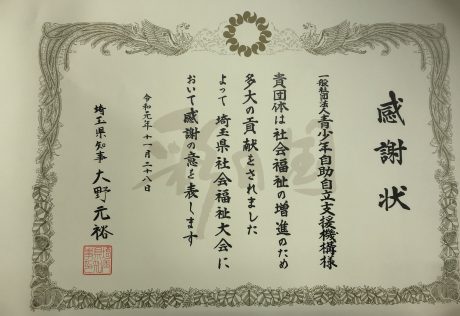 感謝状
一般社団法人青少年自助自立支援機構様
貴団体は社会福祉の増進のため
多大の貢献をされました
よって埼玉県社会福祉大会に
おいて感謝の意を表します
令和元年十一月二十八日
埼玉県知事 大野元裕